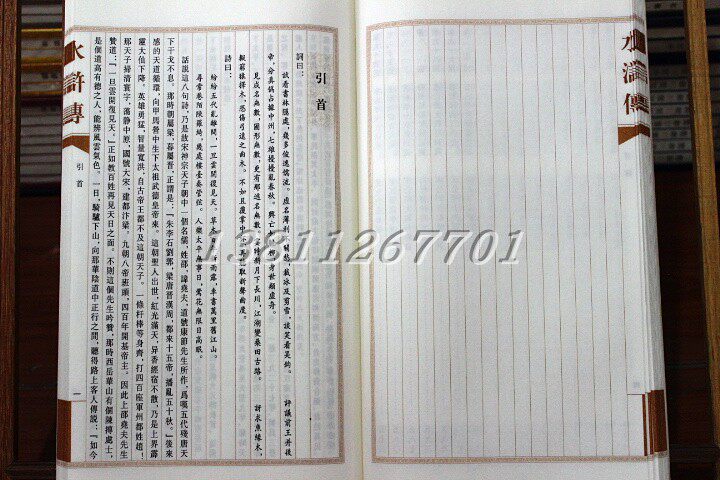 水滸傳
引首
一
引首
詞曰:
試看書林隱處,幾多俊逸儒流。虛名薄利不關愁,裁冰及剪雪,談笑看吳鉤。 評議前王并後
帝,分真僞占據中州,七雄擾擾亂春秋。興亡如脆柳,身世類虛舟。
見成名無數,圖形無數,更有那逃名無數。霎時新月下長川,江湖變桑田古路。 訝求魚緣木,
擬窮猿擇木,恐傷弓遠之曲木。不如且覆掌中杯,再聽取新聲曲度。
詩曰:
紛紛五代亂離間,一旦雲開復見天。草木百年新雨露,車書萬里舊江山。
尋常巷陌陳羅綺,幾處樓臺奏管弦。人樂太平無事日,鶯花無限日高眠。
話說這八句詩,乃是故宋神宗天子朝中一個名儒,姓邵,諱堯夫,道號康節先生所作,爲嘆五代殘唐天
下干戈不息。那時朝屬梁,暮屬晉,正謂是:『朱李石劉郭,梁唐晉漢周,都來十五帝,播亂五十秋。』後來
感的天道循環,向甲馬營中生下太祖武德皇帝來。這朝聖人出世,紅光滿天,异香經宿不散,乃是上界霹
靂大仙下降。英雄勇猛,智量寬洪,自古帝王都不及這朝天子。一條杆棒等身齊,打四百座軍州都姓趙!
那天子掃清寰宇,蕩静中原,國號大宋,建都汴梁。九朝八帝班頭,四百年開基帝主。因此上邵堯夫先生
贊道:『一旦雲開復見天。』正如教百姓再見天日之面。不則這個先生吟贊,那時西岳華山有個陳摶處士,
是個道高有德之人,能辨風雲氣色。一日騎驢下山,向那華陰道中正行之間,聽得路上客人傳說:『如今
水滸傳
13811267701